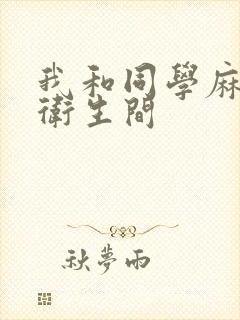 我和同學麻
衛生間
秋夢雨